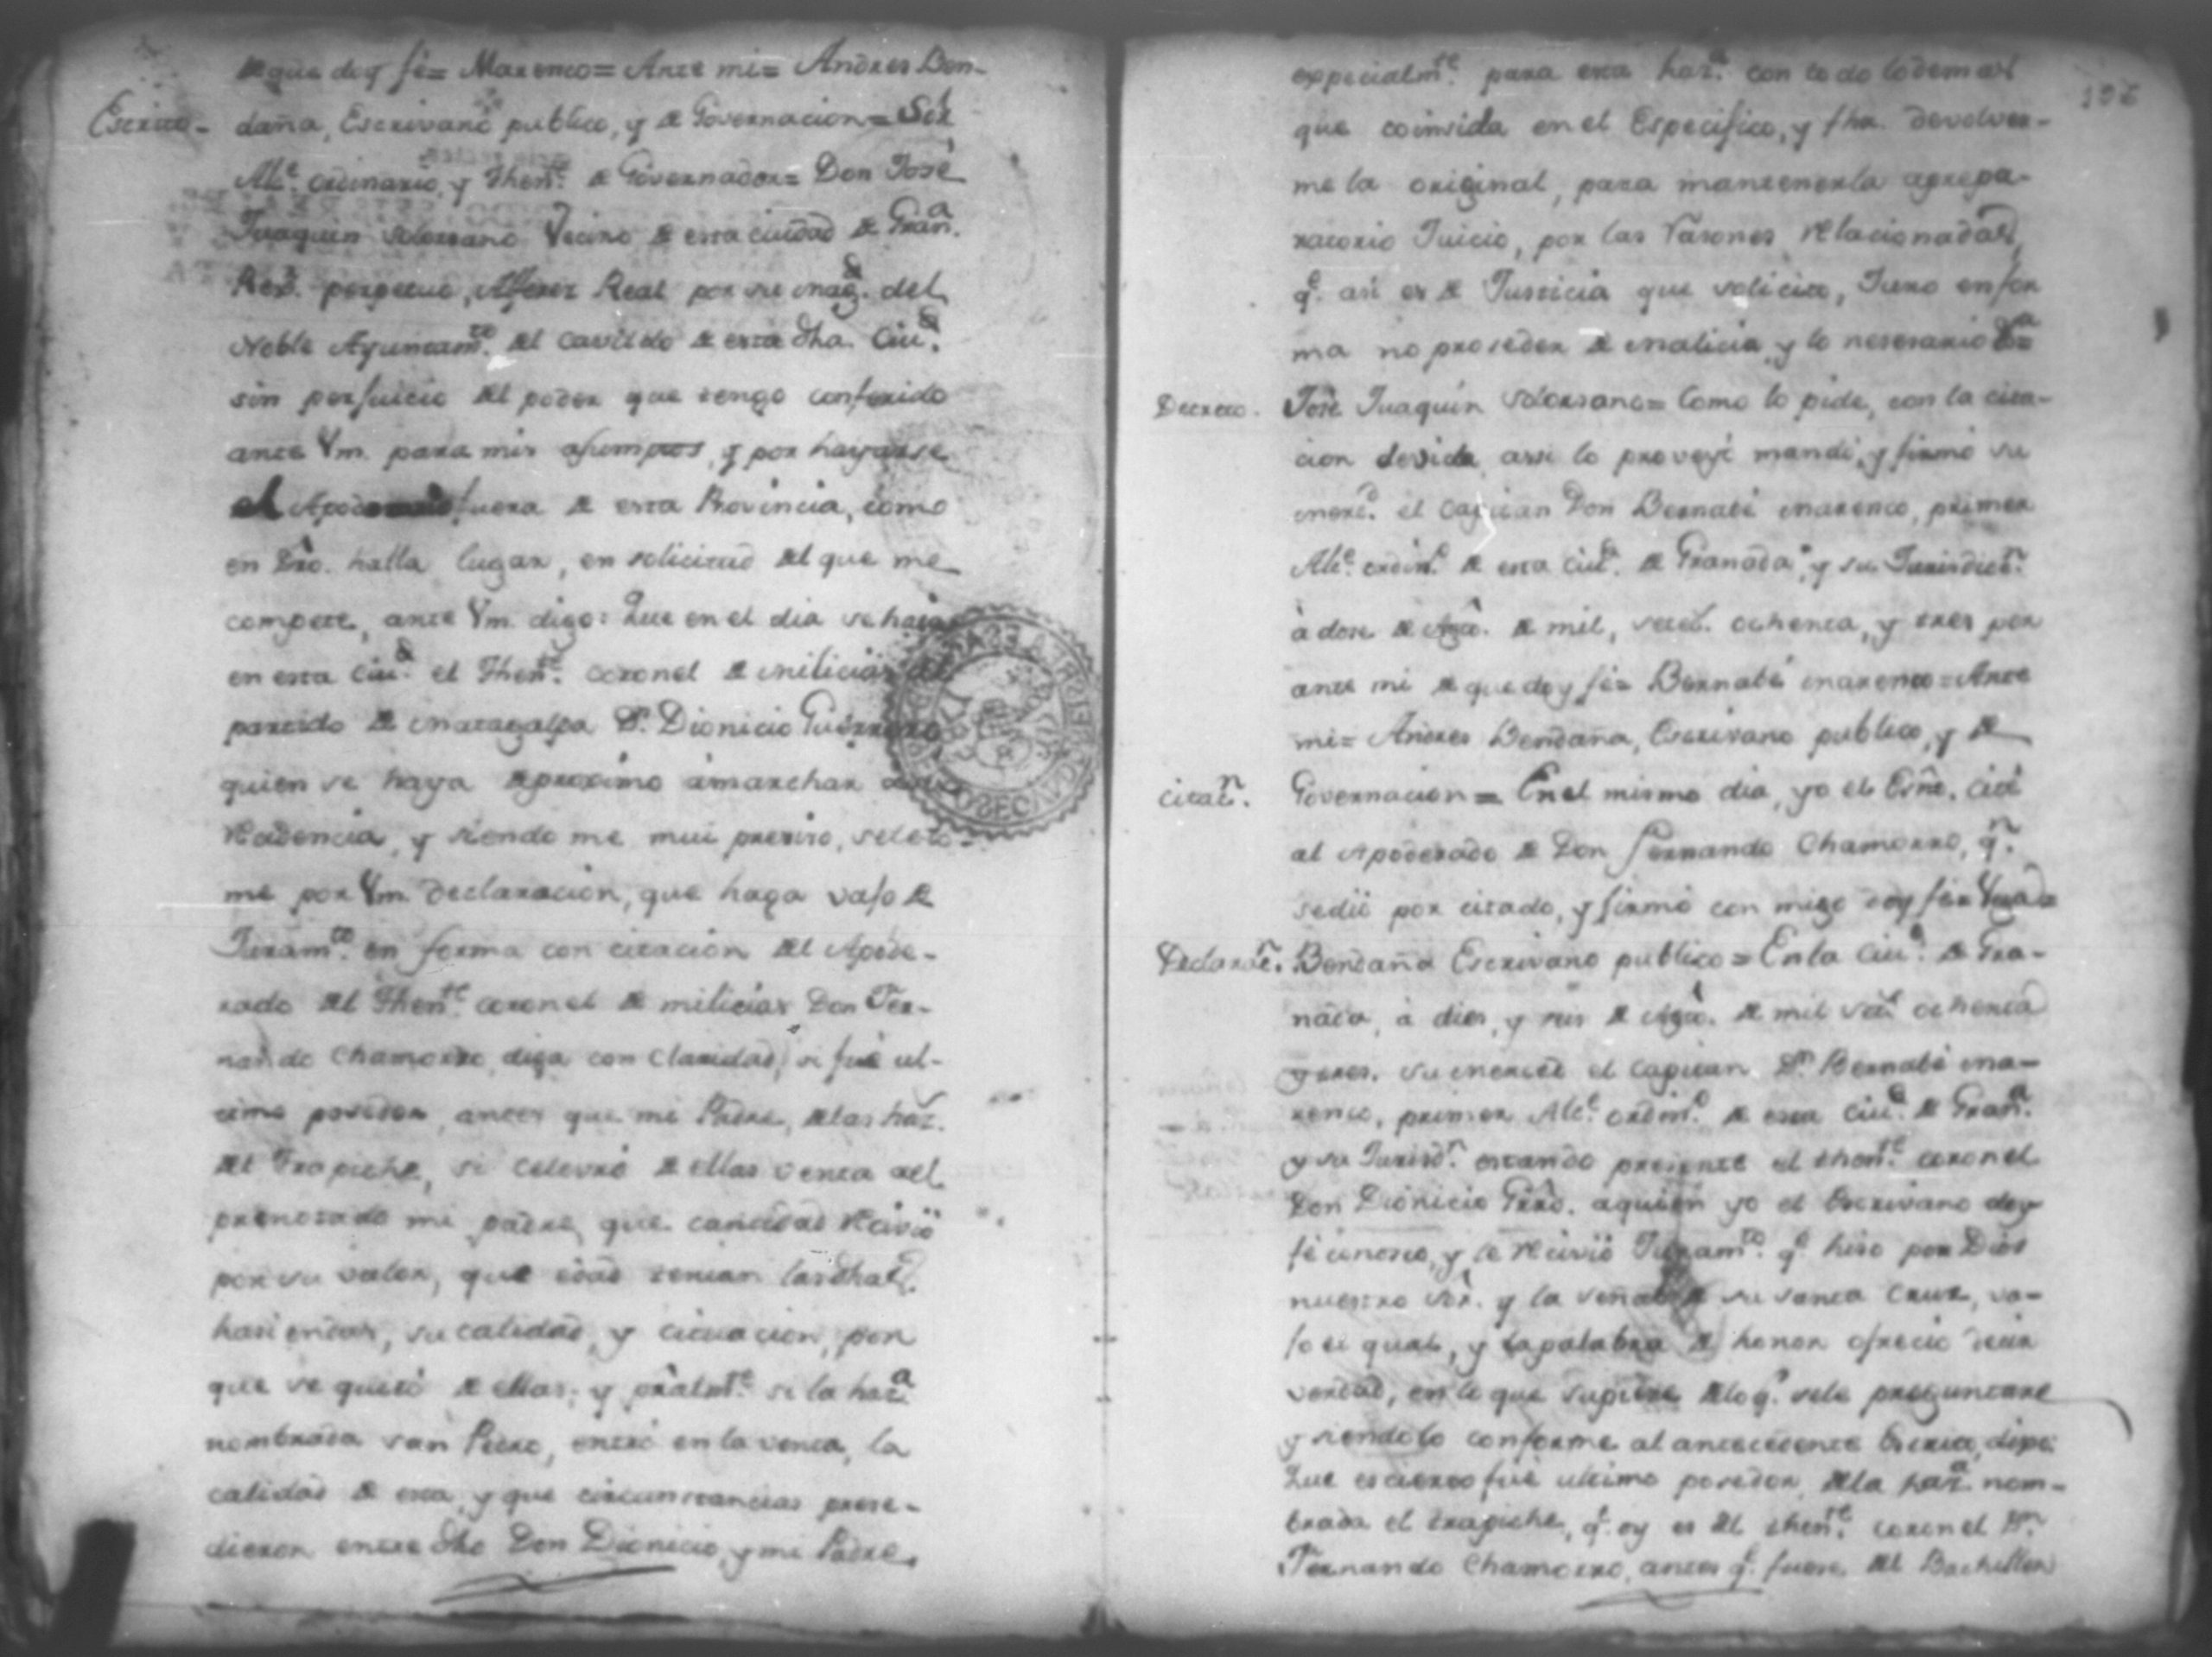 de que doy fé= Marenco= Ante mi= Andres Ben-
Escrito- daña, Escrivano publico, y de Governacion= Sōr
Alc.e ordinario, y Then.te de Governador= Don José
Juaquin Solorsano Vecino de esta ciudad de Gran.a
Rex.r perpetuo, Alferez Real por su mag.d del
Noble Ayuntam.to del Cavildo de esta dha. Ciu.d
sin perjuicio del poder que tengo conferido
ante Vm. para mis asumptos, y por hayarse
el Apoderado fuera de esta Provincia, como
en Dro. halla lugar, en solicitud del que me
compete, ante Vm. digo: Que en el dia se haya
en esta Ciu.d el Then.te coronel de milicias del
partido de matagalpa D.n Dionicio Guerrero
quien se haya de proximo á marchar
recidencia, y siendo me mui presiso, se le to-
me por Vm. declaracion, que haga vajo de
Juram.to en forma con citacion del Apode-
rado del Then.te coronel de milicias Don Fer-
nando Chamorro, diga con claridad, si fué ul-
timo posedor, antes que mi Padre, de las haz.s
del Trapiche, si celevró de ellas venta al
prenotado mi padre, que cantidad recivió
por su valor, que edad tenian las dhas.
hasiendas, su calidad, y cituacion, por
que se quitó de ellas; y prālm.te si la haz.a
nombrada san Pedro, entró en la venta, la
calidad de esta, y que circunstancias prese-
dieron entre dho Don Dionicio, y mi Padre,
expecialm.te para esta haz.a con todo lo demas
que coinsida en el Especifico, y fha. devolver-
me la original, para mantenerla aprepa-
ratorio Juicio, por las rasones relacionadas,
q.e asi es de Justicia que solicito, Juro en for
ma no proseder de malicia, y lo nesesario &.a=
Decreto. José Juaquin Solorsano= Como lo pide, con la cita-
cion devida, assi lo proveyé mandó, y firmó su
merc.d el capitan Don Bernabé marenco, primer
Alc.e ordin.o de esta ciu.d de Granada, y su Jurisdicc.n
à dose de Agto. de mil, setec.s ochenta, y tres por
ante mi de que doy fé= Bernabé marenco= Ante
mi= Andres Bendaña, Escrivano publico, y de
Citac.n. Governacion= En el mismo dia, yo el Esno. cité
al Apoderado de Don Fernando Chamorro, q.n
se dió por citado, y firmó con migo doy fé=
Declarac.n. Bendaña Escrivano publico= En la Ciu.d de Gra-
nada, à dies, y seis de Agto. de mil set.s ochenta
y tres. su merced el capitan D.n Bernabé ma-
renco, primer Alc.e ordin.o de esta Ciu.d de Gran.a
y su Jurisd.n estando presente el then.te coronel
Don Dionicio Grro. aquien yo el Escrivano doy
fé conosco, y le recivió Juram.to q.e hiso por Dios
nuestro Sōr. y la señal de su santa Cruz, va-
jo el qual, y la palabra de honor ofrecio decir
verdad, en lo que supiere de lo q.e se le preguntare
y siendolo conforme al antecedente Escrito, dijo:
Que es cierto fué ultimo posedor de la haz.a nom-
brada el trapiche, q.e oy es del then.te coronel D.n
Fernando Chamorro, antes q.e fuese del Bachiller